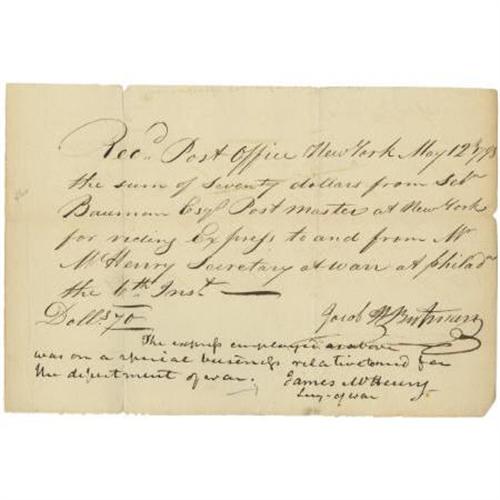 Recd. Post Office New York May 12th 1798
the sum of Seventy dollars from Sebn
Bauman Esqr Post master at New York
for riding Express to and from Mr
McHenry Secretary at war at Philada
the 6th Inst
Dolls 70
Jacob
The express employed as above
was on a special business relative to
the department of war.
James McHenry
Secy. of war